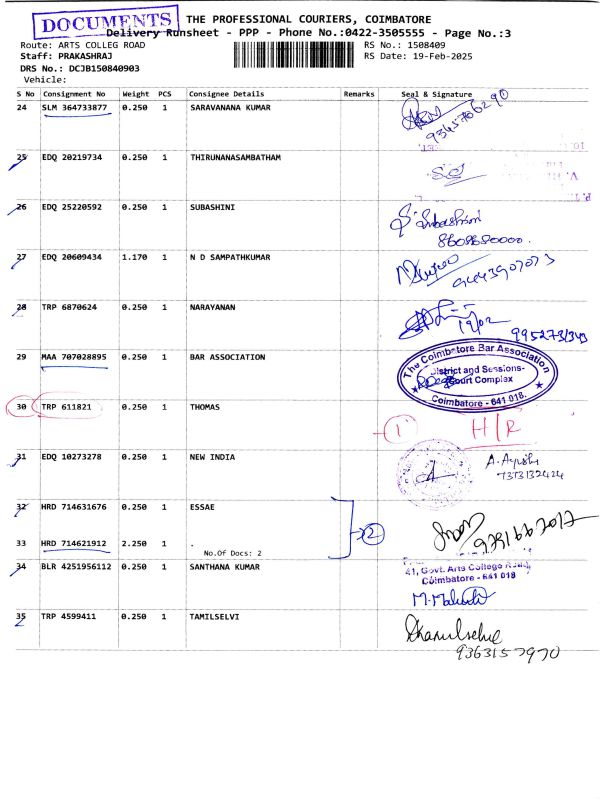 DOCUMENTS
THE PROFESSIONAL COURIERS, COIMBATORE
Delivery Runsheet - PPP - Phone No.:0422-3505555 - Page No.:3
Route: ARTS COLLEG ROAD RS No.: 1508409
Staff: PRAKASHRAJ RS Date: 19-Feb-2025
DRS No.: DCJB150840903
Vehicle:
S No Consignment No Weight PCS Consignee Details Remarks Seal & Signature
24 SLM 364733877 0.250 1 SARAVANANA KUMAR
9345766290
25 EDQ 20219734 0.250 1 THIRUNANASAMBATHAM
26 EDQ 25220592 0.250 1 SUBASHINI
S. Subashini
8608680000.
27 EDQ 20609434 1.170 1 N D SAMPATHKUMAR
9443907073
28 TRP 6870624 0.250 1 NARAYANAN
19/02
29 MAA 707028895 0.250 1 BAR ASSOCIATION
The Coimbatore Bar Association
District and Sessions-
Court Complex
Coimbatore - 641 018.
30 TRP 611821 0.250 1 THOMAS
1 H/R
31 EDQ 10273278 0.250 1 NEW INDIA
7373132424
32 HRD 714631676 0.250 1 ESSAE
2
33 HRD 714621912 2.250 1 .
No.Of Docs: 2
34 BLR 4251956112 0.250 1 SANTHANA KUMAR
41, Govt. Arts College Road,
Coimbatore - 641 018
35 TRP 4599411 0.250 1 TAMILSELVI
9363157970